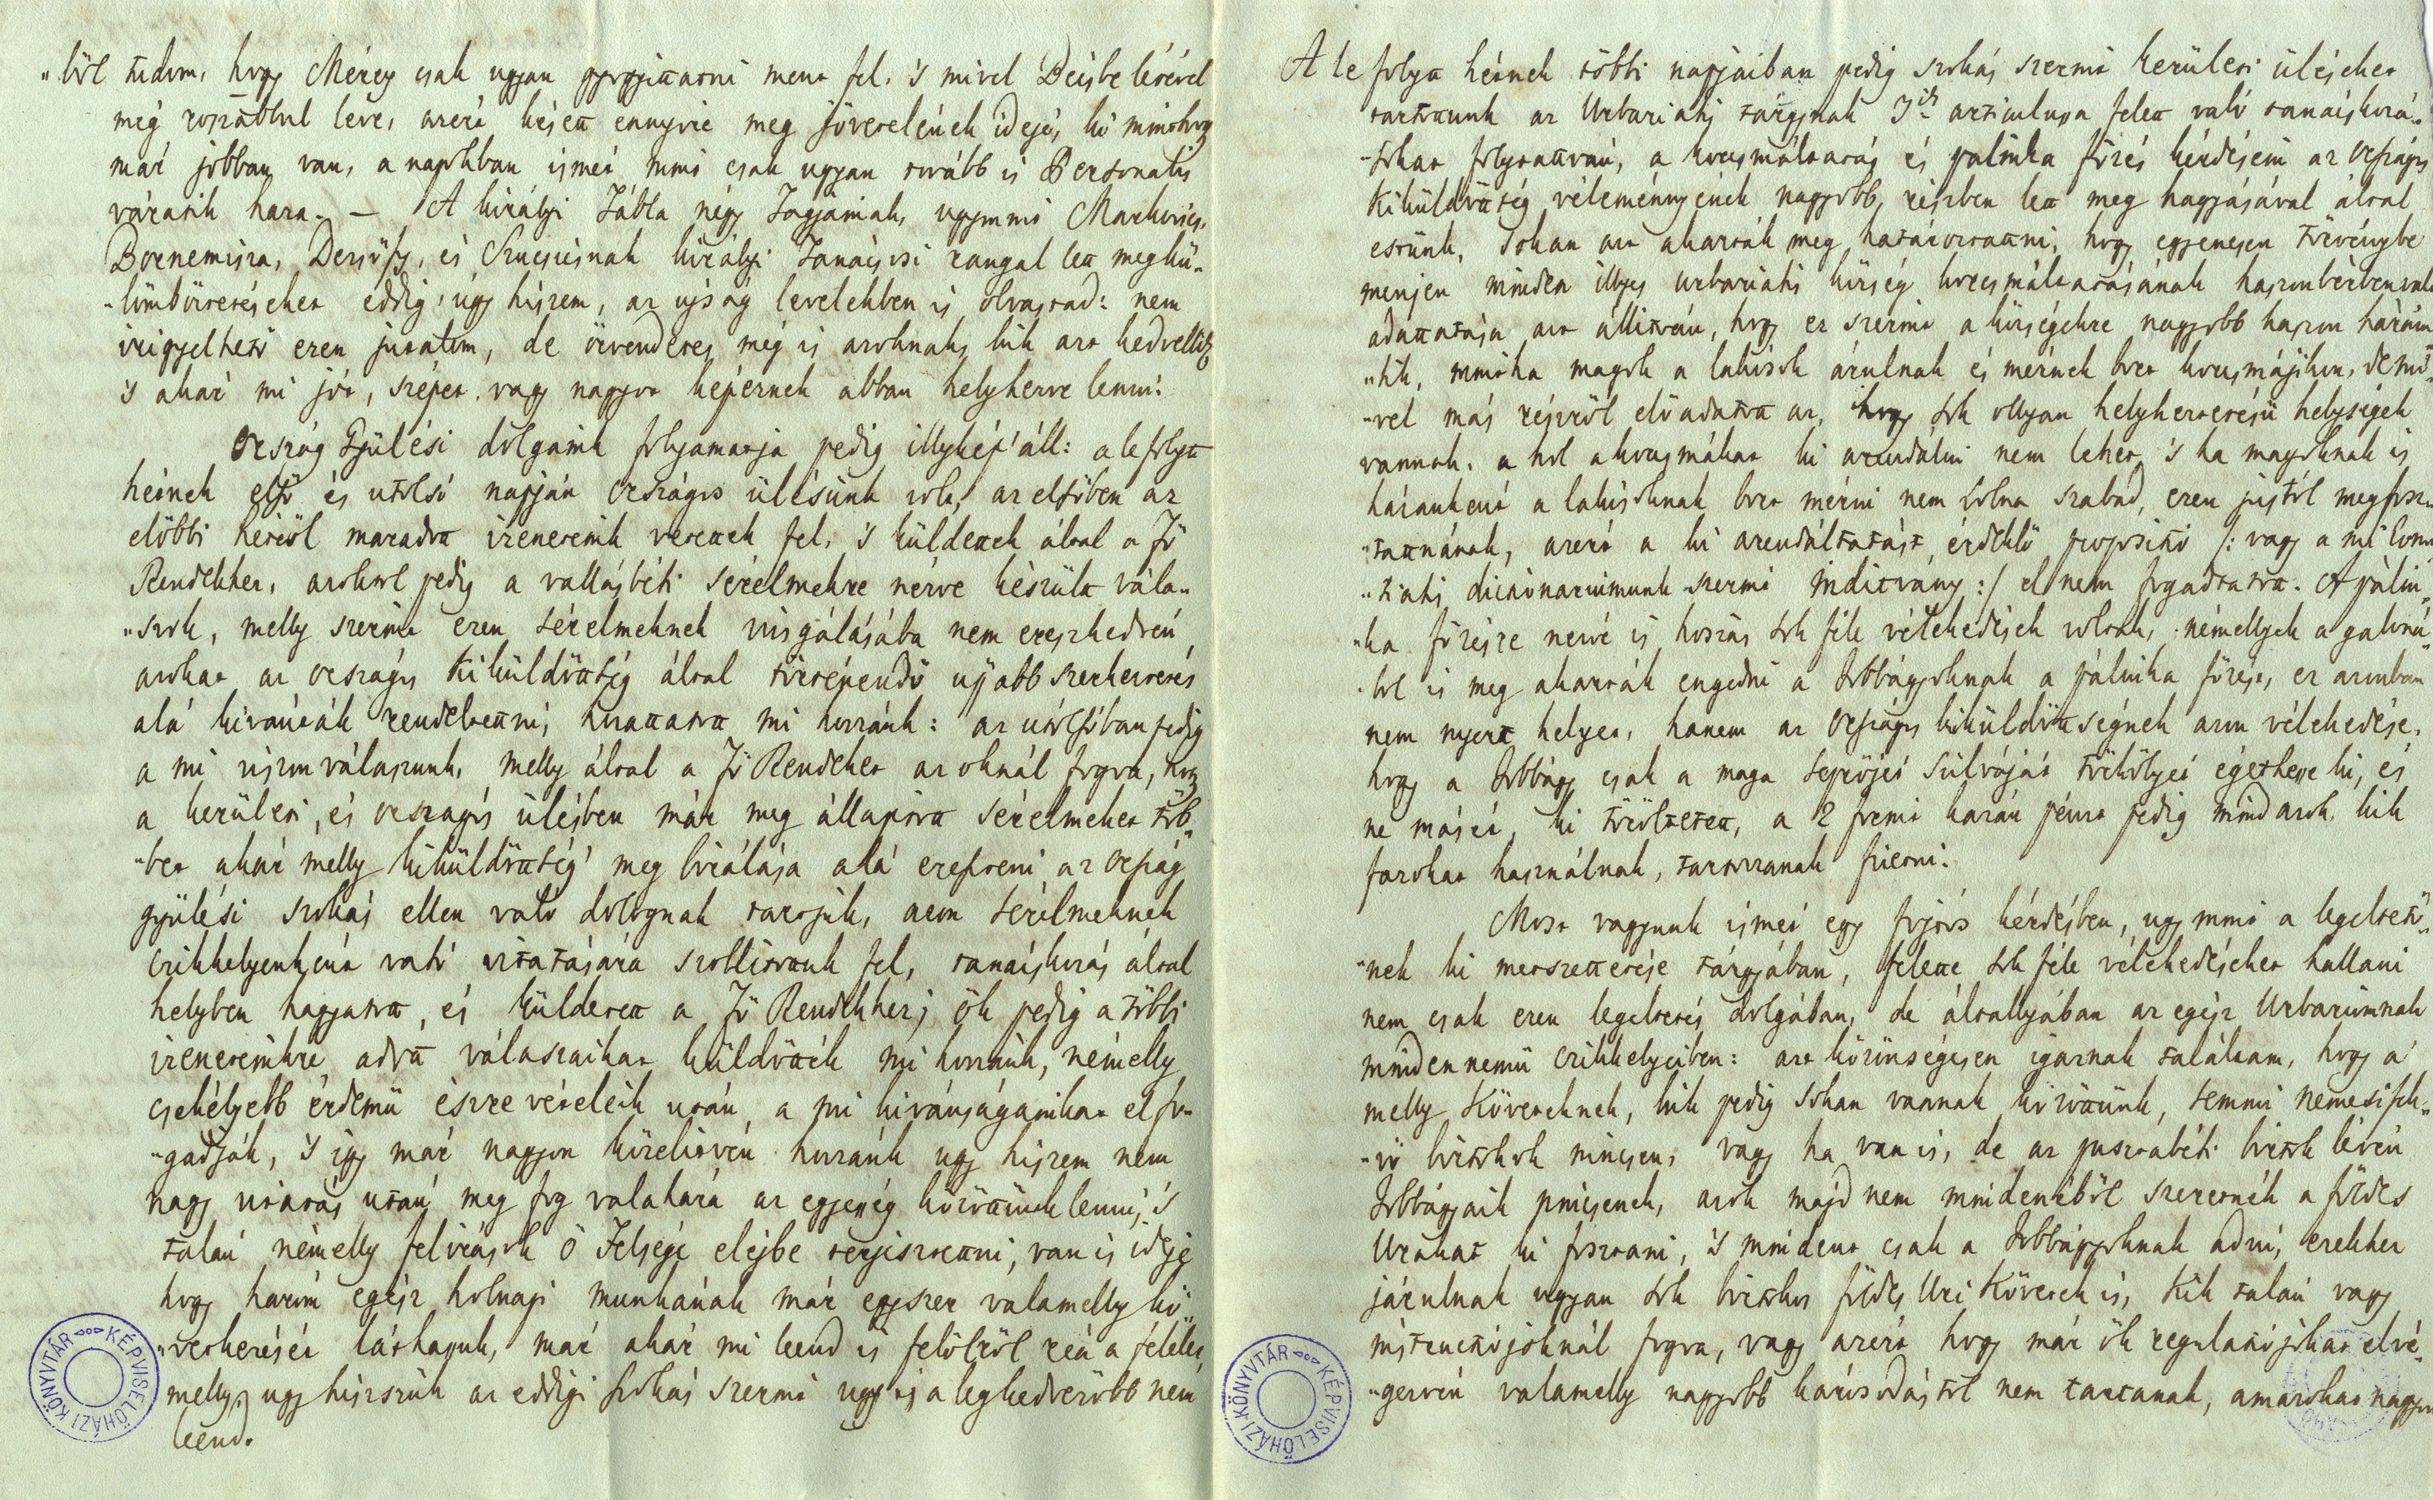 "ből tudom, hogy Mérey csak ugyan gyógyittatni ment fel, 's mivel Bécsbe létével
még roszabbul lett, azért késett ennyire meg jövetelének ideje, ki minthogy
már jobban van, a napokban ismét mint csak ugyan tovább is Personalis
váratik haza. — A királyi Tábla négy Tagjainak, ugymint Markovics,
Bornemisza, Dersöfy, és Szucsicsnak királyi Tanácsosi rangal lett megkü-
-lömböztetéseket eddig, úgy hiszem, az ujság levelekben is olvastad: nem
irigyelhető ezen jutalom, de örvendetes még is azoknak, kik azt kedvellik,
's akár mi jót, szépet, vagy nagyot képzelnek abban helyheztve lenni.
Ország Gyülési dolgaink folyamatja pedig illykép' áll: a lefolyt
hétnek első és utolsó napján Országos ülésünk volt, az elsőben az
előbbi hétről maradtt izeneteink vétettek fel, 's küldettek által a Fő
Rendekhez, azoktol pedig a vallásbéli sérelmekre nézve készült vála-
"szok, melly szerint ezen sérelmeknek visgálásába nem ereszkedvén
azokat az országos Kiküldöttség által törtépendő ujjabb szerkeztetés
alá kivánták rendeltettni, hozattatott mi hozzánk: az utolsóban pedig
a mi viszon válaszunk, melly által a Fő Rendeket az oknál fogva, hogy
a kerületi, és országos ülésben már meg állapitott sérelmeket töb-
"bet akár melly kiküldöttség' meg birálása alá ereszteni az Ország
gyülési szokás ellen való dolognak tartjuk, azon sérelmeknek
czikkelyenként való vitatására szollitottuk fel, tanácskozás által
helyben hagyatott, és küldetett a Fő Rendekhez; ök pedig a többi
izeneteinkre adott válaszaikat küldötték mi hozzánk, némelly
csekélyebb érdemü észre vételeik után a mi kivánságainkat elfo-
"gadják, 's igy már nagyon közelitvén hozzánk ugy hiszem nem
nagy vitatás után meg fog valahára az egyesség közöttünk lenni, 's
talán némelly felirások Ő Felsége elejbe terjesztettni, van is ideje
hogy három egész holnapi munkának már egyszer valamelly kö-
"vetkezését láthassuk, már akár mi leend is felölröl reá a felelet,
melly ugy hiszszük az eddigi szokás szerint ugy is a legkedvezöbb nem
leend.
A le folyt hétnek többi napjaiban pedig szokás szerint kerületi üléseket
tartottunk az Urbarialis tárgynak Iső articulusa felett való tanácskozá-
-sokat folytattván, a korcsmáltatás és palinka főzés kérdésein az Országos
Kiküldöttség véleménnyének nagyobb részben lett meg hagyásával által
estünk. Sokan azt akarták meg határoztattni, hogy egyenesen törvénybe
menjen minden illyes urbarialis község korcsmáltatásának haszonbérben való
adattatása azt állitván, hogy ez szerint a községekre nagyobb haszon háram-
"lik, mintha magok a lakosok árulnak és mérnek bort korcsmájikon, de mi-
-vel más részről előadatott az, hogy sok ollyan helyheztetésü helységek
vannak, a hol a korcsmákat ki arendálni nem lehet, 's ha magoknak is
házanként a lakosoknak bort mérni nem volna szabad, ezen justól megfosz-
"tattnának, azért a ki arendáltatást érdeklő propositió /: vagy a mi
dictionariumunk szerint inditvány :/ el nem fogadtatott. A pálin-
"ka főzésre nézve is hoszas sok féle vélekedések voltak, némellyek a gaboná-
-bol is meg akarták engedni a Jobbágyoknak a pálinka főzést, ez azonban
nem nyertt helyet, hanem az Országos kiküldöttségnek azon vélekedése,
hogy a Jobbágy csak a maga seprőjét szilváját törkölyét égethesse ki, és
ne másét, ki töröltetett, a 2 forint kazán pénzt pedig mind azok kik
fazokat használnak, tartozzanak fizetni.
Most vagyunk ismét egy fojtós kérdésben, ugy mint a legeltető-
"nek ki metszettetése tárgyában, felette sok féle vélekedéseket hallani
nem csak ezen legeltetés dolgában, de általlyában az egész Urbariumnak
minden nemü czikkelyeiben: azt közönségesen igaznak találtam, hogy a'
melly Követeknek, kik pedig sokan vannak közöttünk, semmi nemesi fek-
-vő birtokok nincsen, vagy ha van is, de az pusztabéli birtok lévén
Jobbágyaik nincsenek, azok majd nem mindenéből szeretnék a földes
Urakat ki fosztani, 's mindent csak a Jobbágyoknak adni, ezekhez
járulnak ugyan sok birtokos földes Uri Követek is, kik talán vagy
instructiójoknál fogva, vagy azért hogy már ők regulatiójokat elvé-
-gezvén valamelly nagyobb károsodástol nem tartanak, amazokat nagyon
KÉPVISELŐHÁZI KÖNYVTÁR
KÉPVISELŐHÁZI KÖNYVTÁR